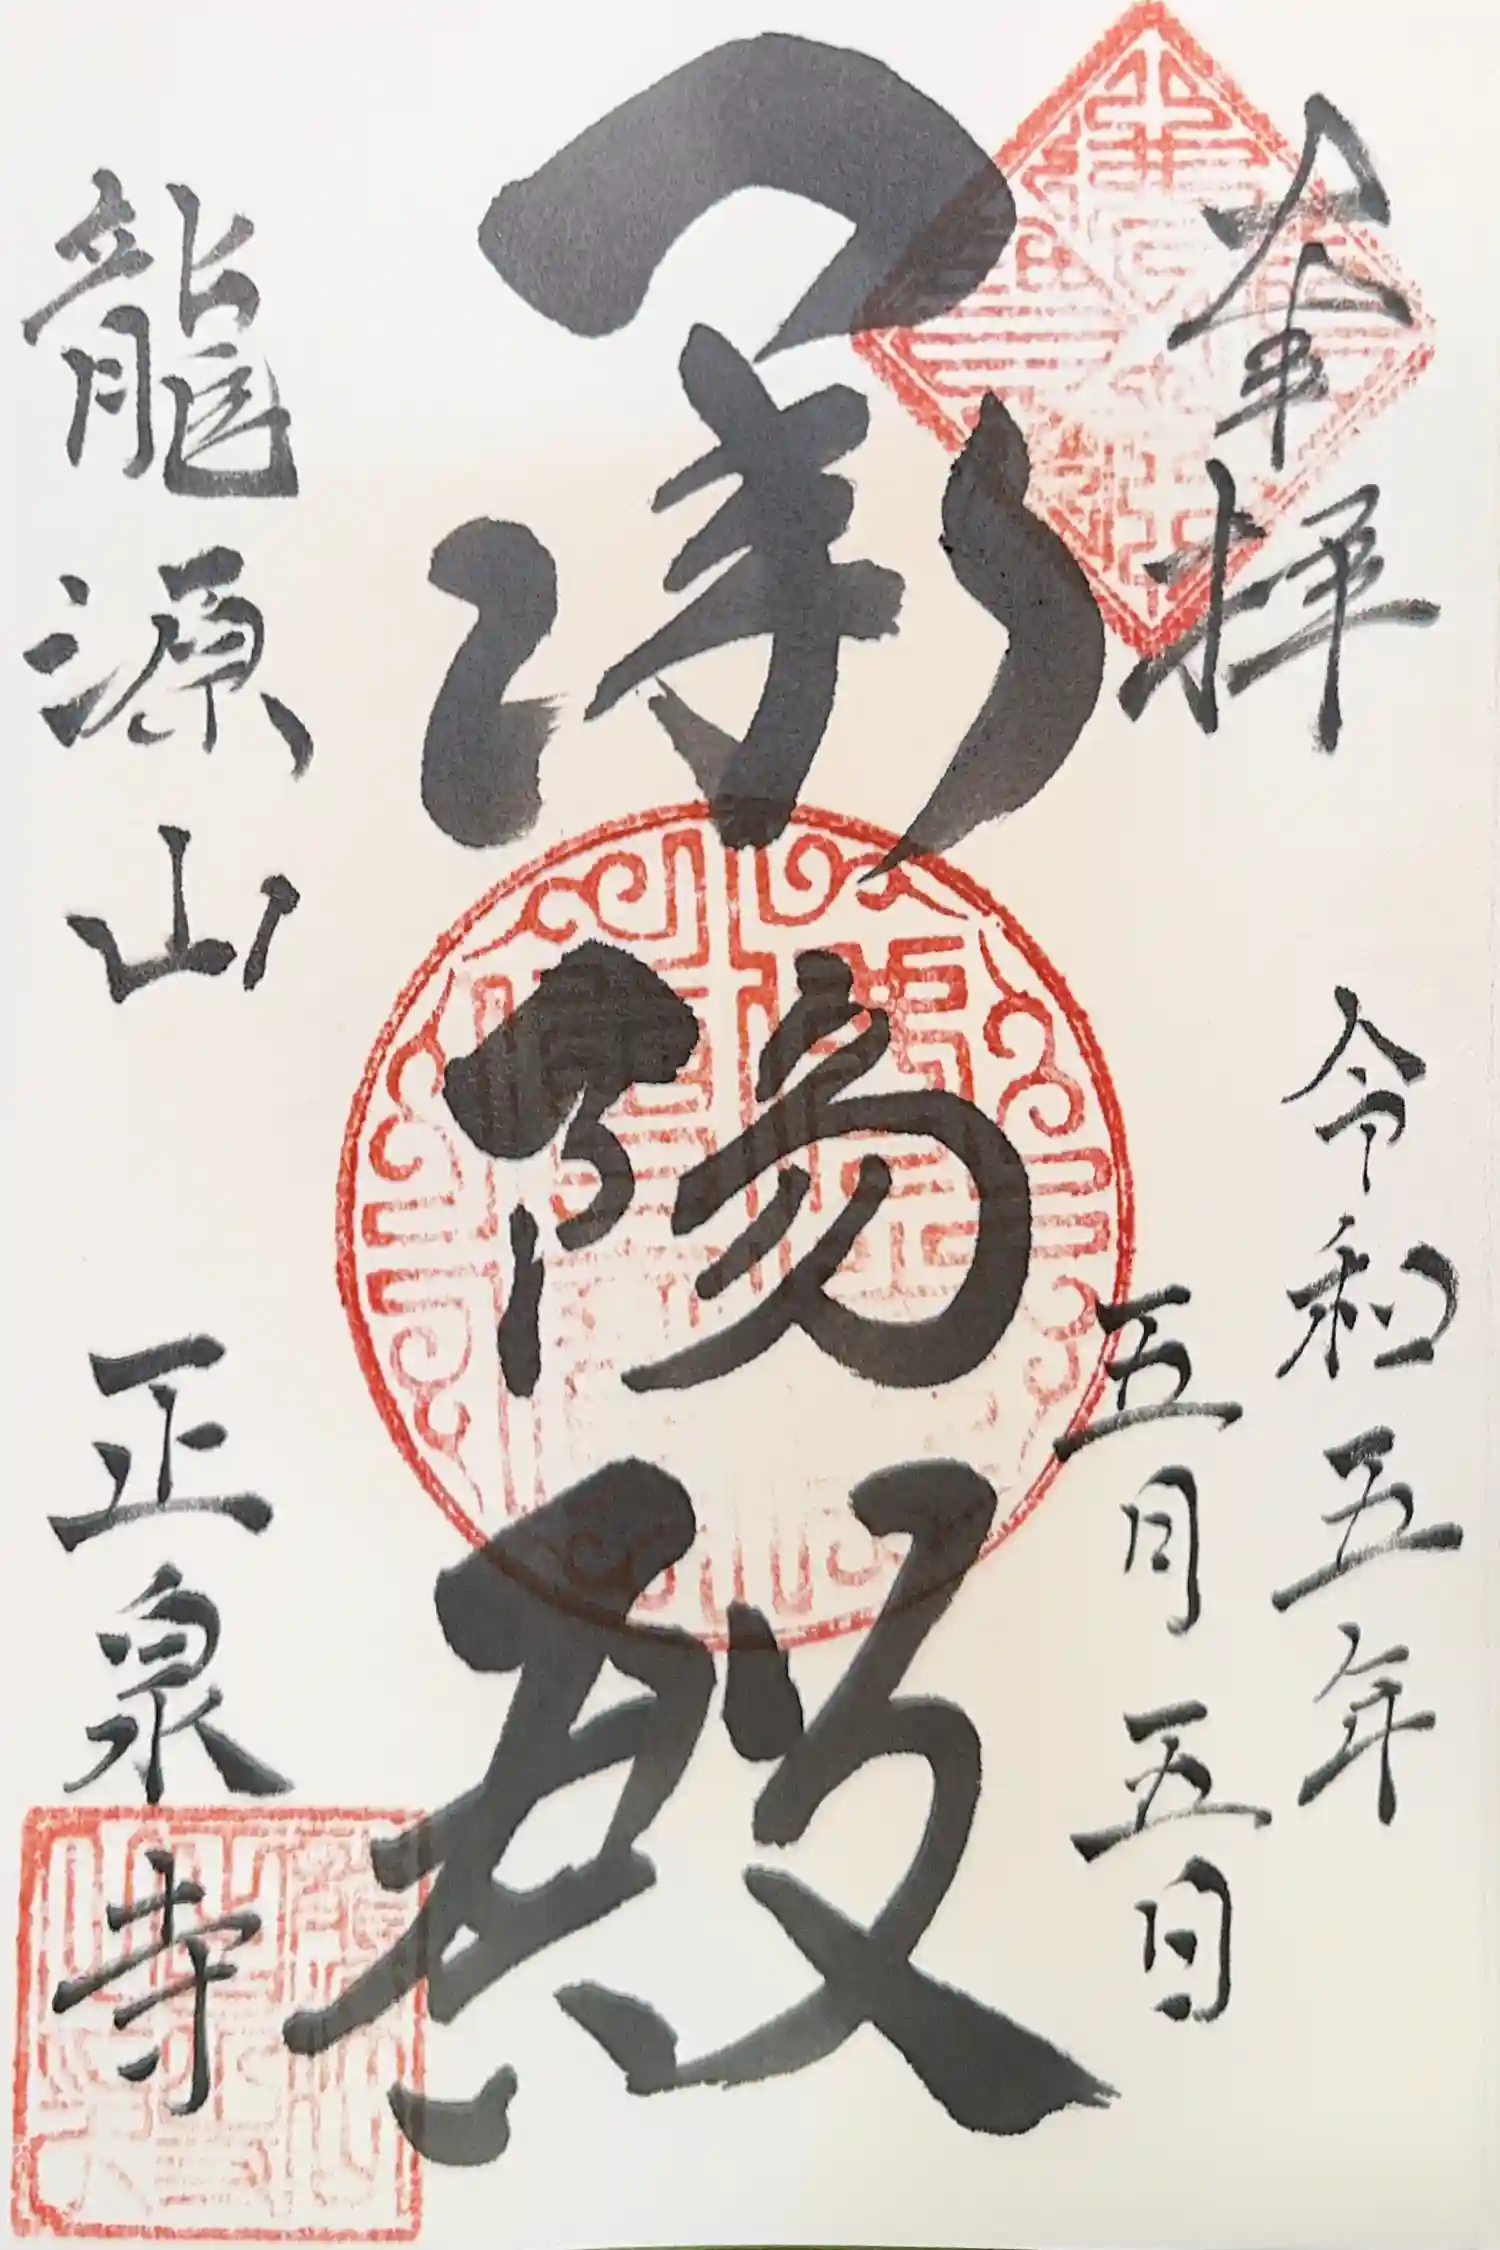 奉拝
令和五年
五月五日
承陽殿
龍源山 正泉寺